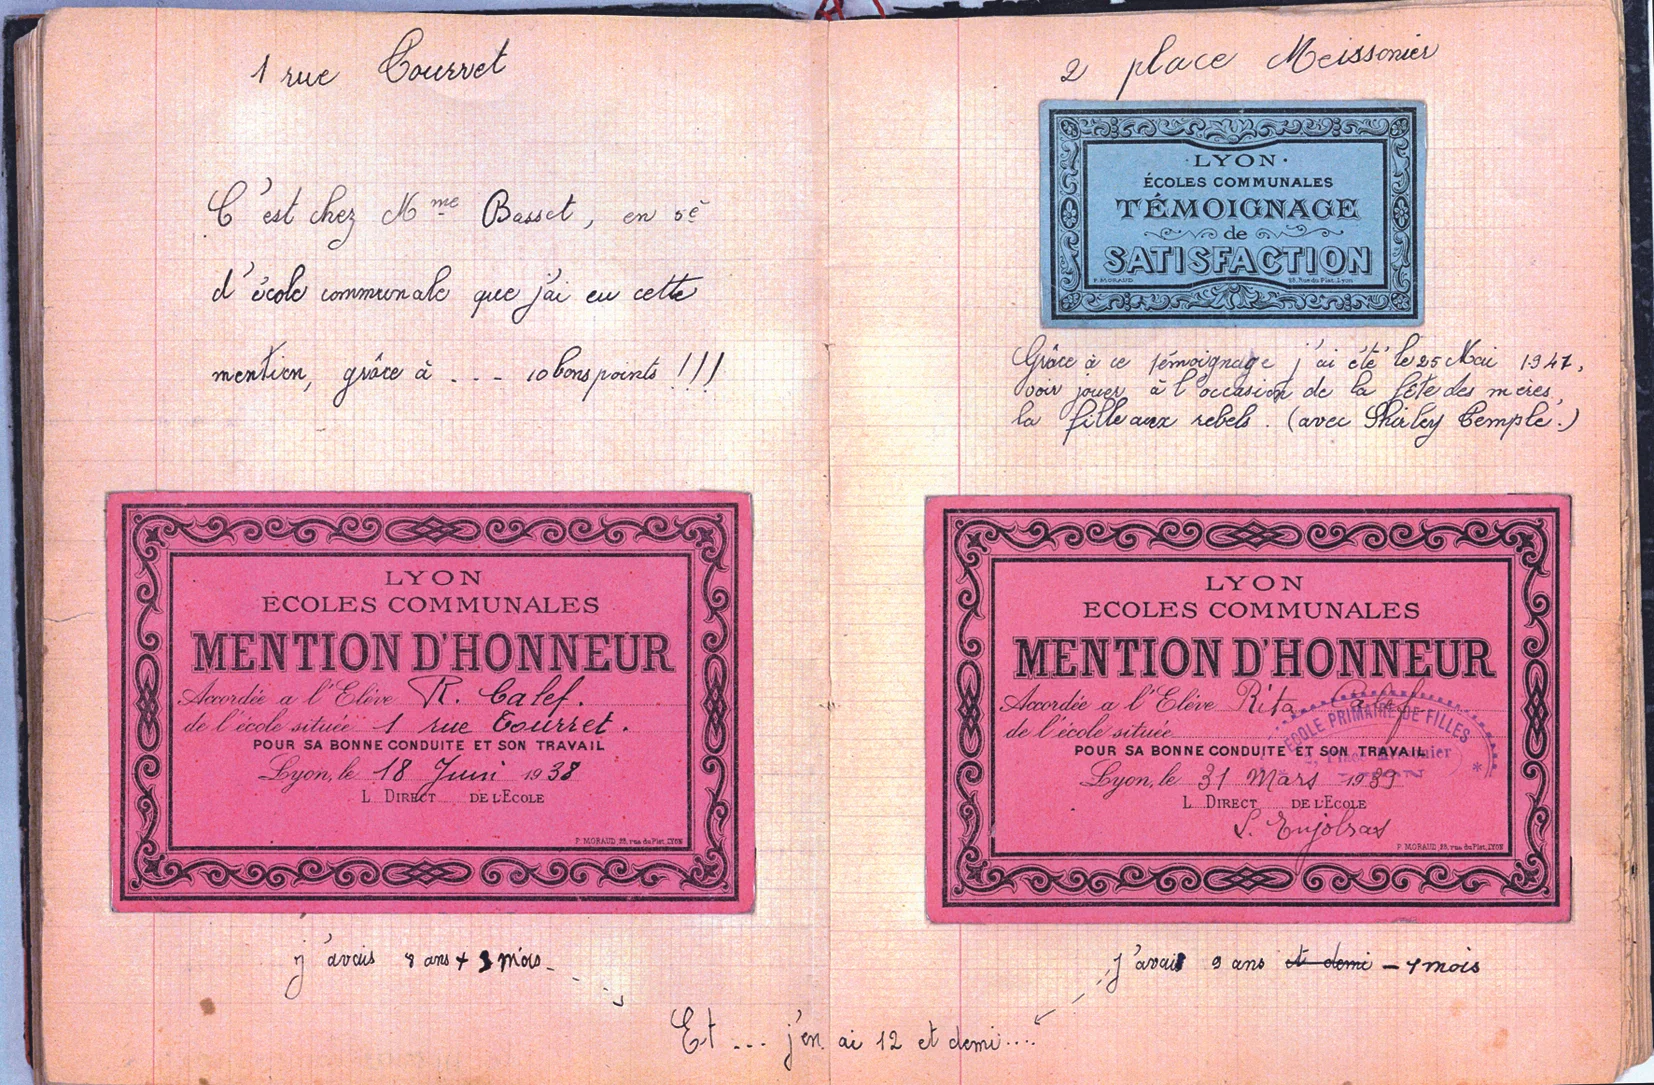 1 rue Tourret
C'est chez Mme Basset, en 5è
d'école communale que j'ai eu cette
mention, grâce à . _ _ 10 bons points !!!
LYON
ECOLES COMMUNALES
MENTION D'HONNEUR
Accordée a l'Elève R. Calef.
de l'école située 1 rue Tourret.
POUR SA BONNE CONDUITE ET SON TRAVAIL
Lyon, le 18 Juin 1938
L DIRECT DE L'ECOLE
P. MORAUD, 28, rue du Plat, LYON
j'avais 8 ans + 3 mois_
2 place Meissonier
·LYON·
ÉCOLES COMMUNALES
TÉMOIGNAGE
de
SATISFACTION
P. MORAUD 28, Rue du Plat, Lyon
Grâce à ce témoignage j'ai été le 25 Mai 1941,
voir jouer à l'occasion de la fête des mères,
la fille aux rebels. (avec Shirley Temple.)
LYON
ECOLES COMMUNALES
MENTION D'HONNEUR
Accordée a l'Elève Rita Calef
de l'école située
ECOLE PRIMAIRE DE FILLES
POUR SA BONNE CONDUITE ET SON TRAVAIL
Lyon, le 31 Mars 1939
L DIRECT DE L'ECOLE
S. Enjolras
P. MORAUD, 28, rue du Plat, LYON
j'avais 9 ans et demi - 1 mois
Et ... j'en ai 12 et demi....